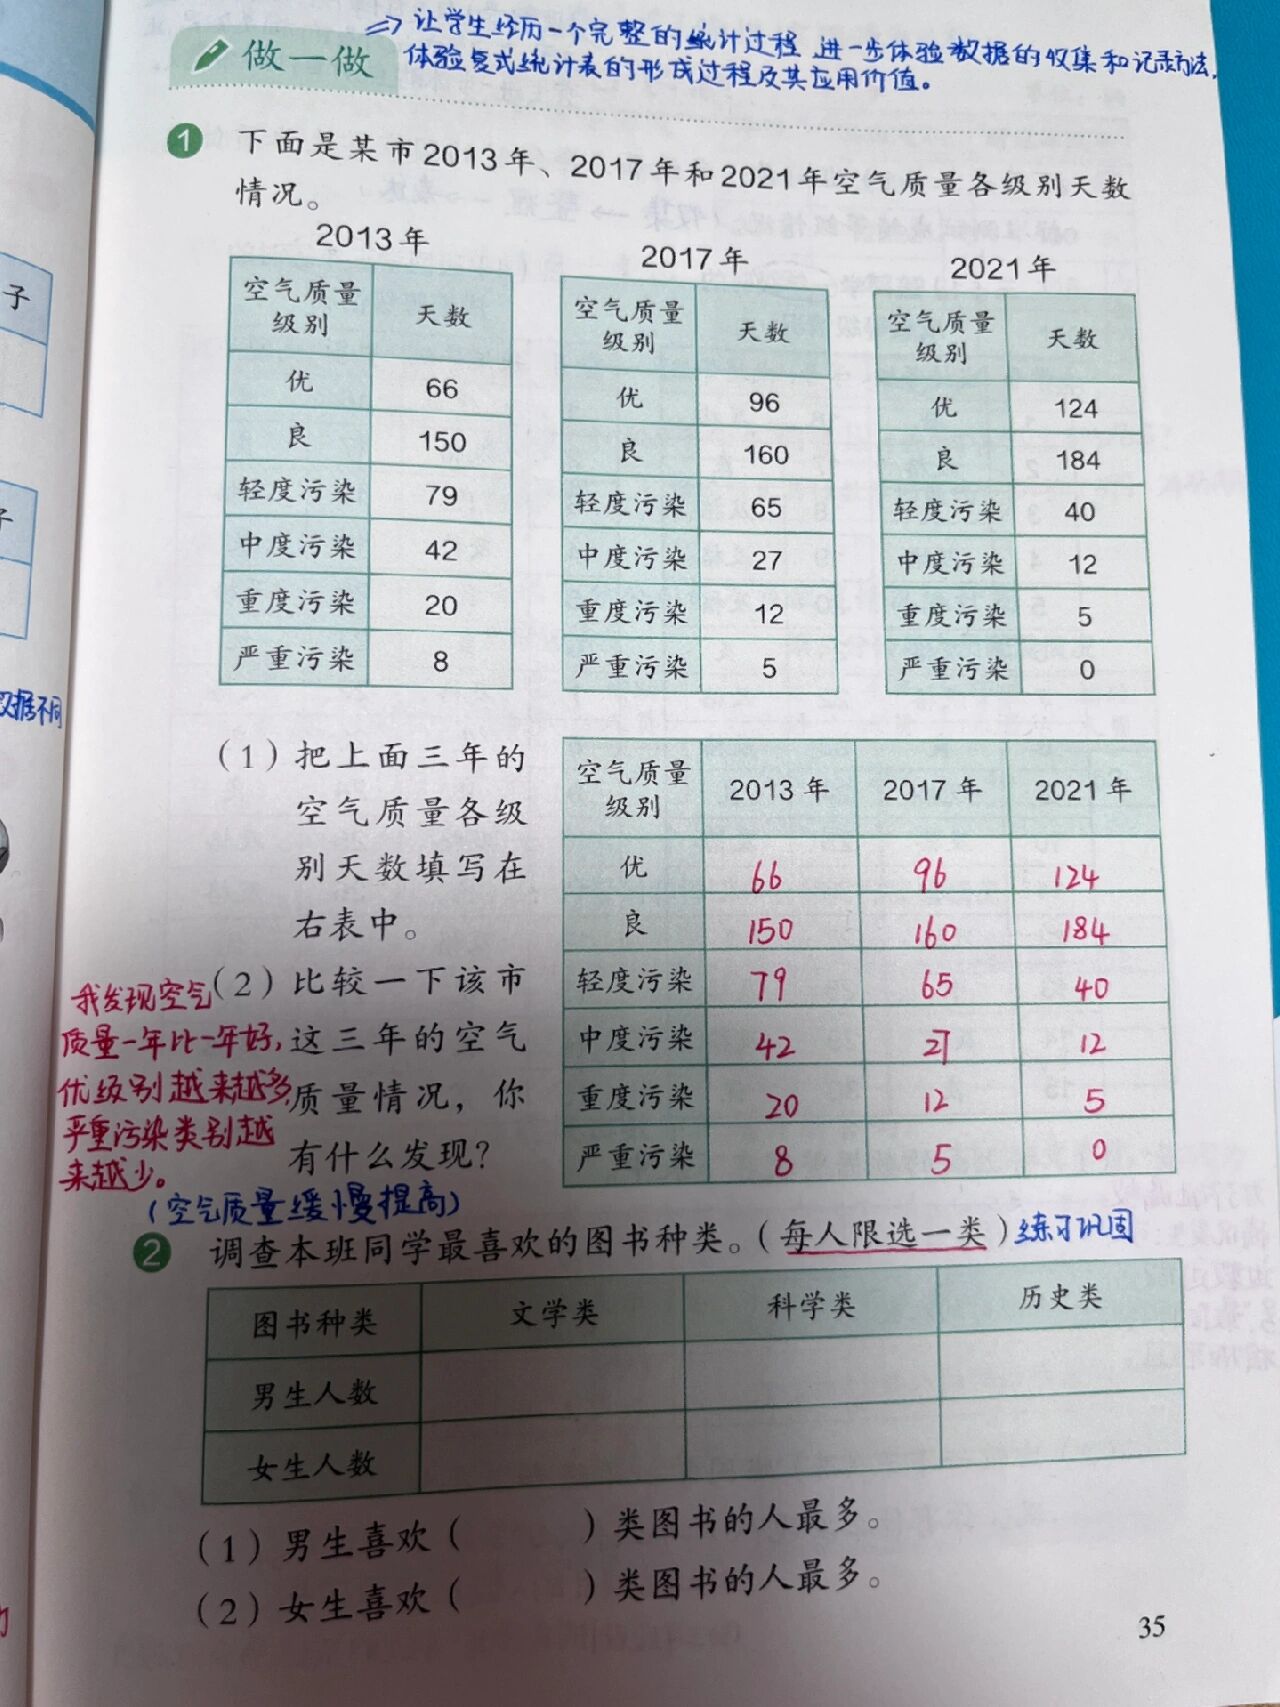 ⇒让学生经历一个完整的统计过程,进一步体验数据的收集和记录方法,
做一做
体验复式统计表的形成过程及其应用价值。
1 下面是某市2013年、2017年和2021年空气质量各级别天数
情况。
2013年
空气质量级别 天数
优 66
良 150
轻度污染 79
中度污染 42
重度污染 20
严重污染 8
2017年
空气质量级别 天数
优 96
良 160
轻度污染 65
中度污染 27
重度污染 12
严重污染 5
2021年
空气质量级别 天数
优 124
良 184
轻度污染 40
中度污染 12
重度污染 5
严重污染 0
子
子
数据不同
(1)把上面三年的
空气质量各级
别天数填写在
右表中。
空气质量级别 2013年 2017年 2021年
优 66 96 124
良 150 160 184
轻度污染 79 65 40
中度污染 42 27 12
重度污染 20 12 5
严重污染 8 5 0
(2)比较一下该市
这三年的空气
质量情况,你
有什么发现?
我发现空气
质量一年比一年好,
优级别越来越多,
严重污染类别越
来越少。
(空气质量缓慢提高)
2 调查本班同学最喜欢的图书种类。(每人限选一类)练习巩固
图书种类 文学类 科学类 历史类
男生人数
女生人数
(1)男生喜欢( )类图书的人最多。
(2)女生喜欢( )类图书的人最多。
35